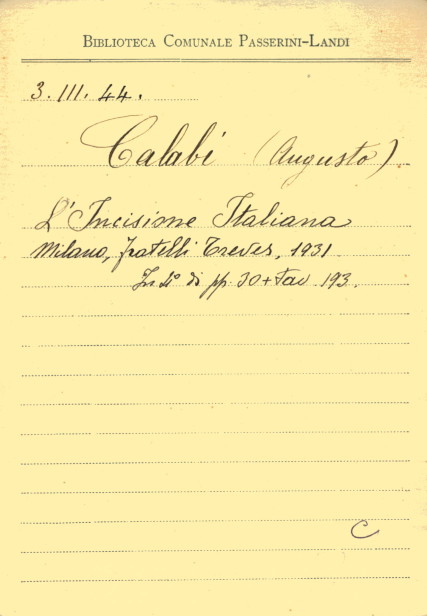 BIBLIOTECA COMUNALE PASSERINI-LANDI
3. III. 44.
Calabi (Augusto)
L'Incisione Italiana
Milano, fratelli Treves, 1931
In 4° di pp. 30 + tav. 193.
C